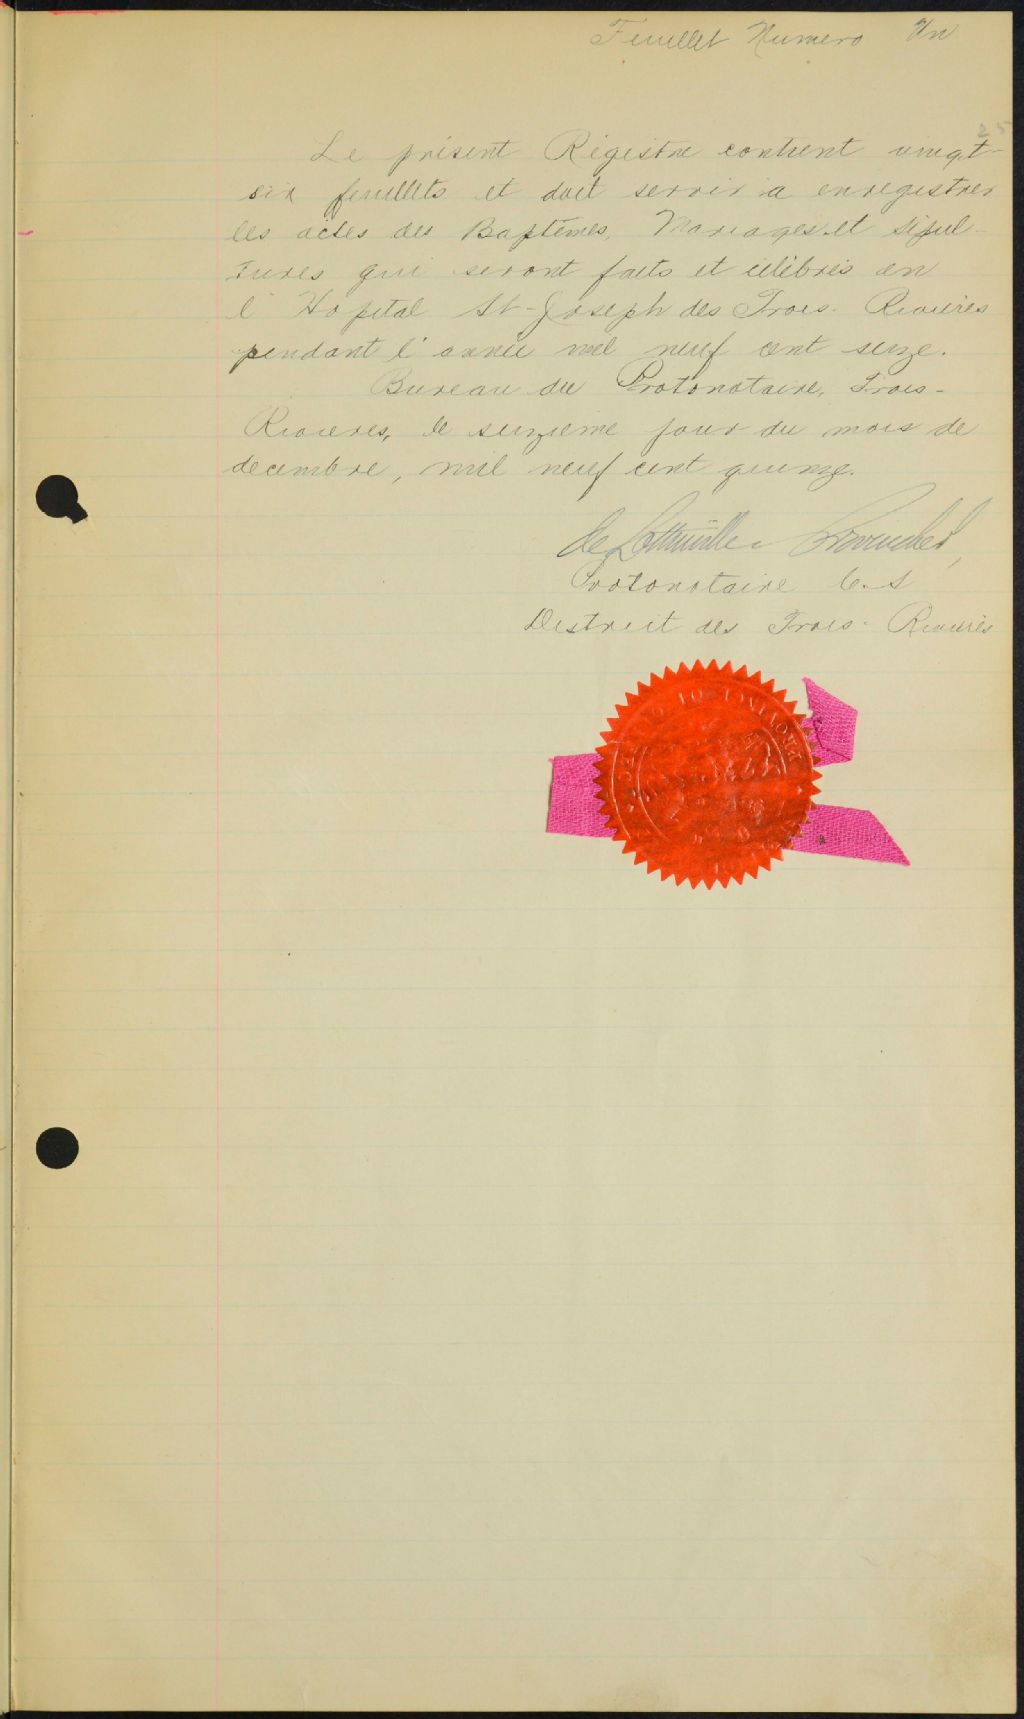 Feuillet Numero Un
25
Le présent Régistre contient vingt-
six feuillets et doit servir a enregistrer
les actes des Baptêmes, Mariages et sépul-
tures qui seront faits et célébrés en
l'Hopital St-Joseph des Trois-Rivières
pendant l'année mil neuf cent seize.
Bureau du Protonotaire, Trois-
Rivieres, le seizieme jour du mois de
decembre, mil neuf cent quinze.
de Lottinville
Protonotaire C.S
District des Trois-Rivières